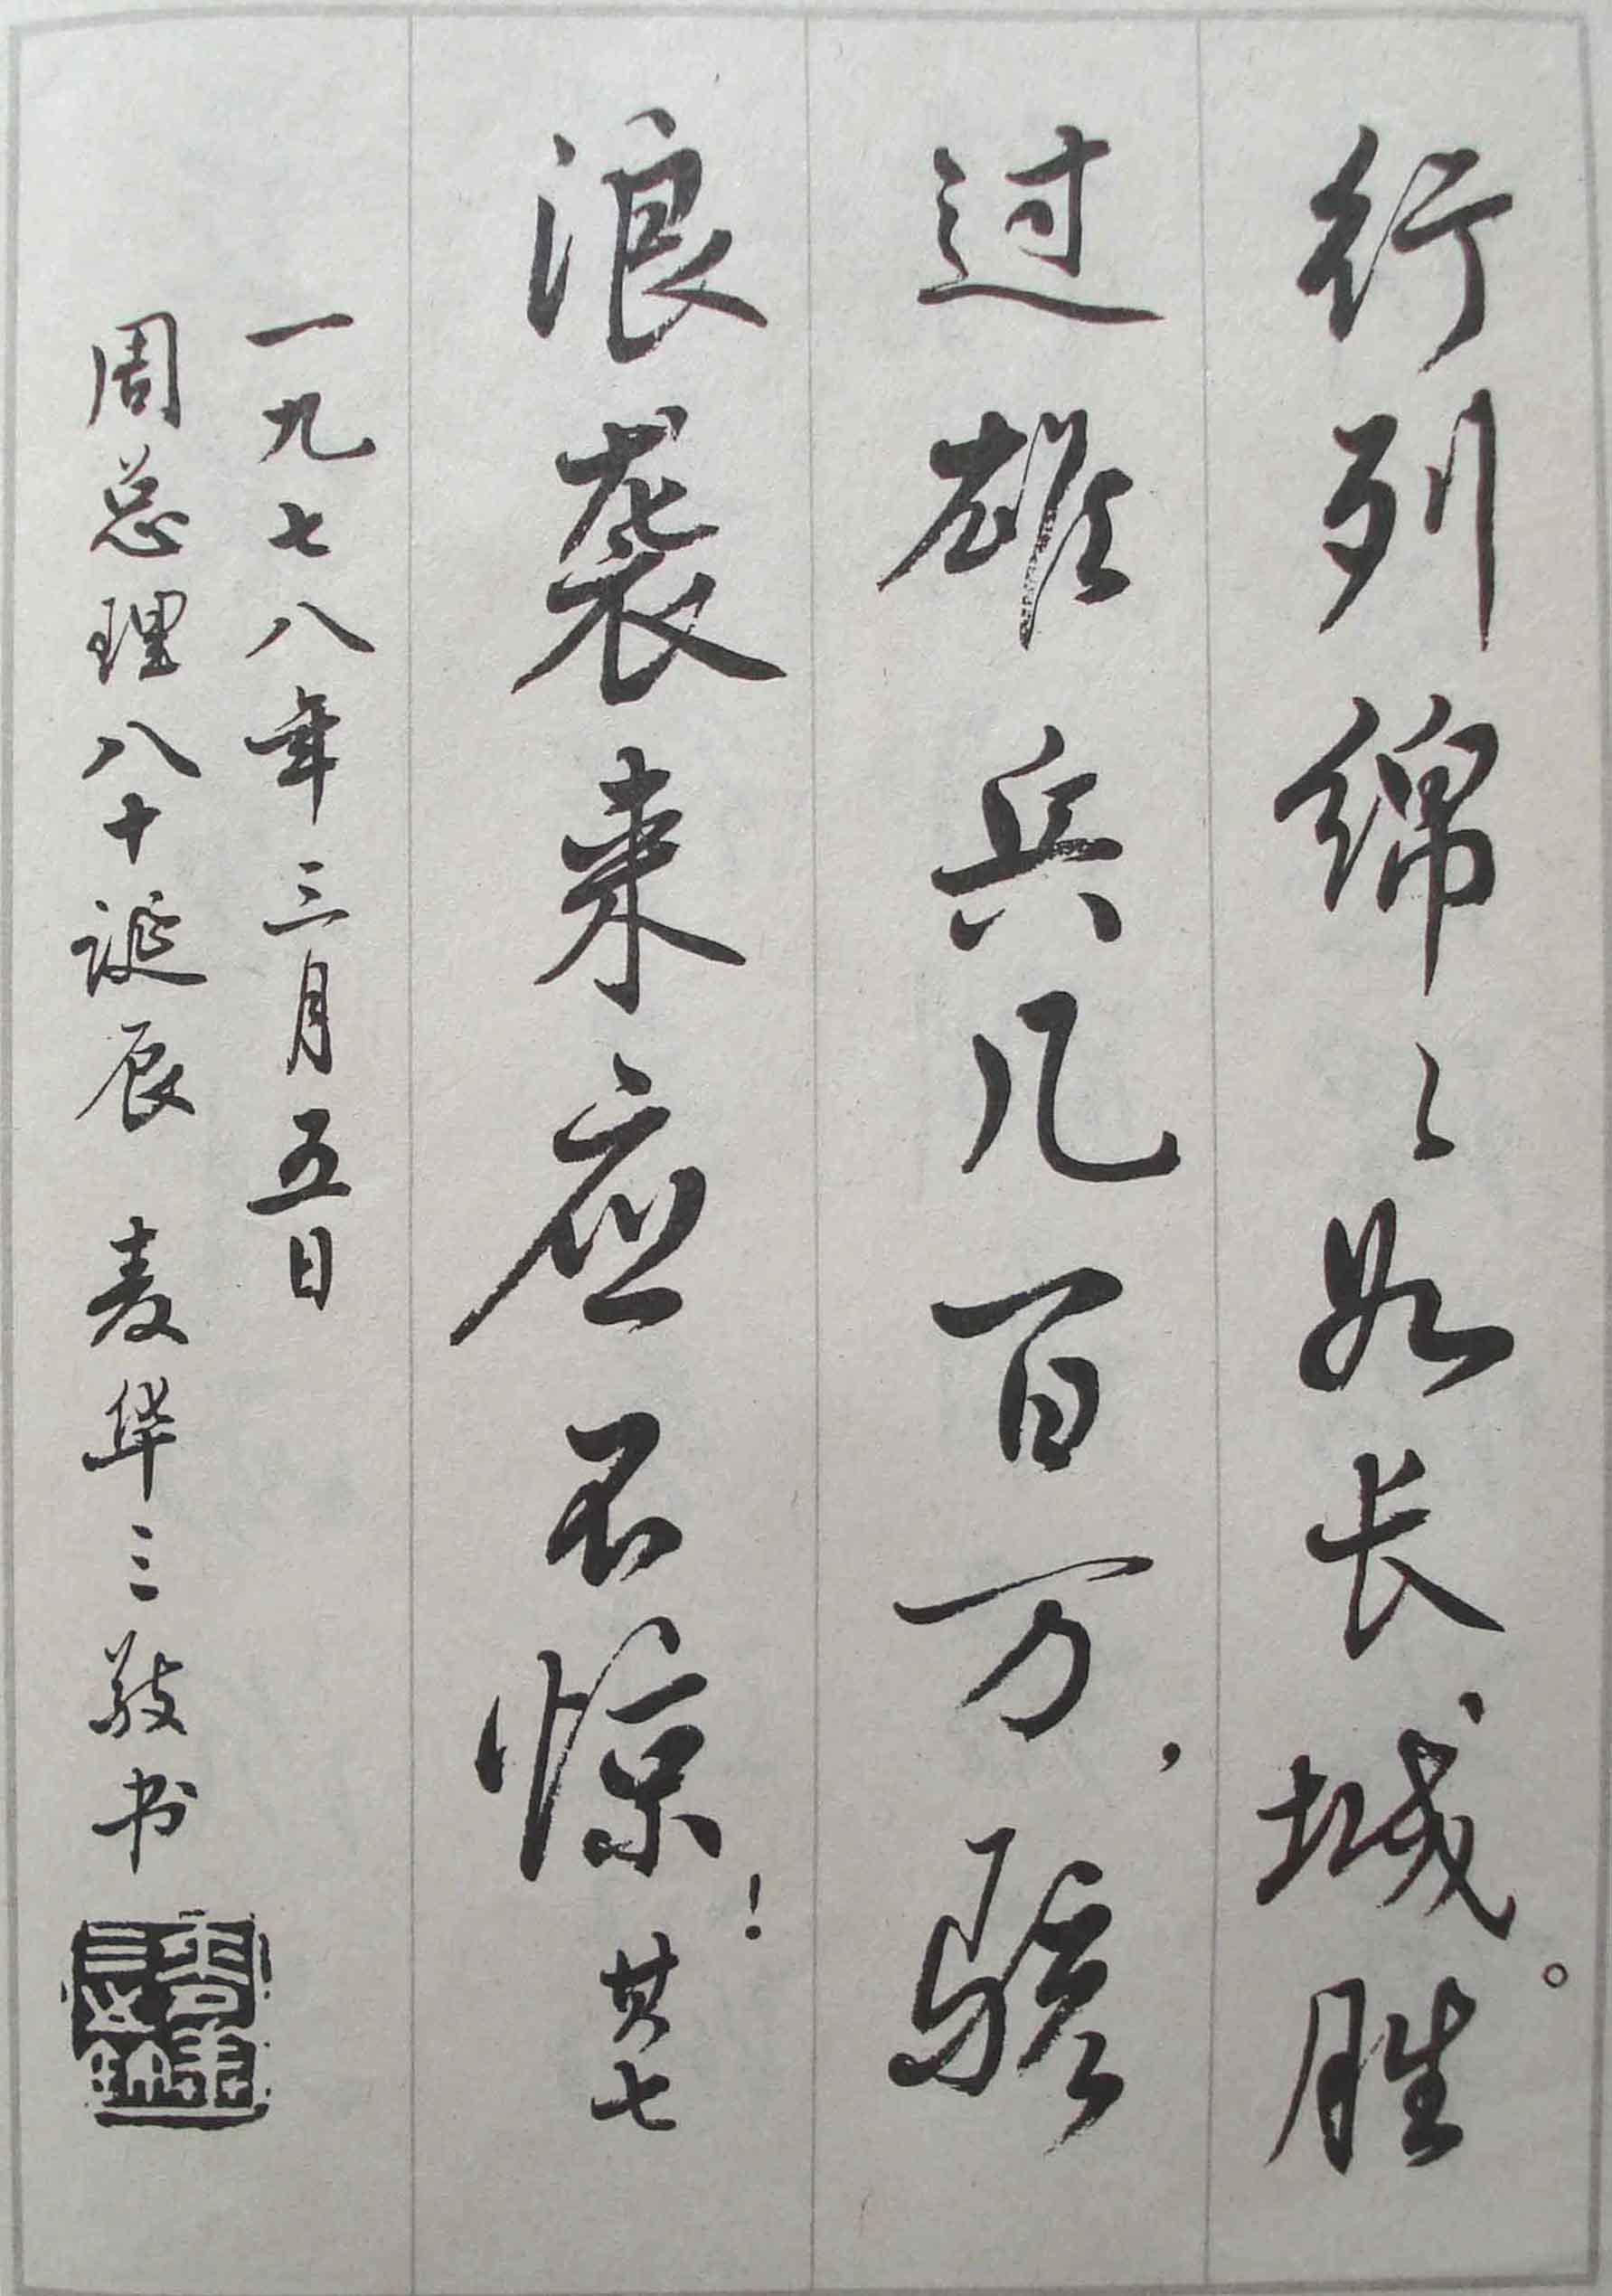 行列绵々如长城。胜
过雄兵几百万，骇
浪袭来应不惊！其七
一九七八年三月五日
周总理八十诞辰 麦华三敬书